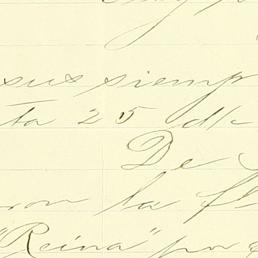 sus siemp
ta 25 d/c
De
ron la fl
"Reina" por